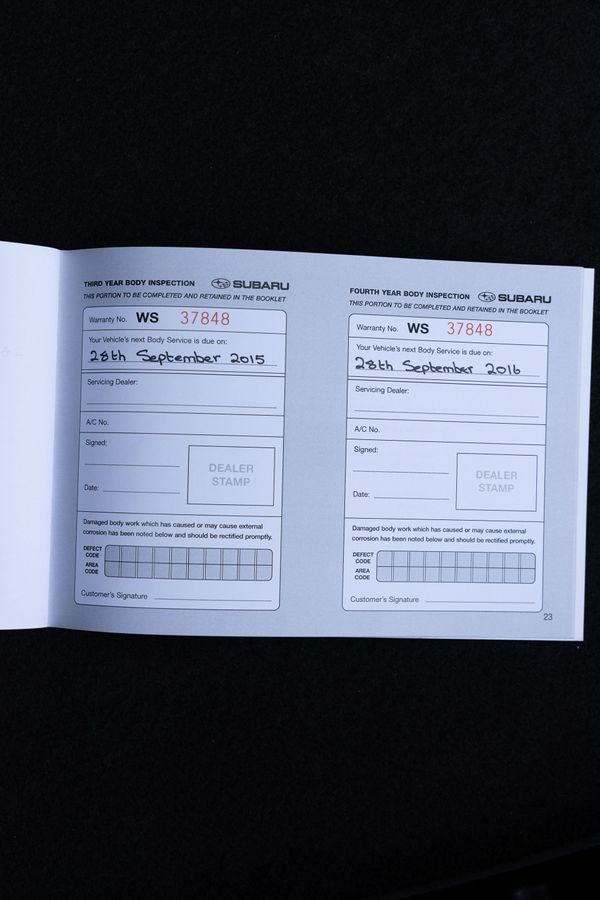 THIRD YEAR BODY INSPECTION SUBARU
THIS PORTION TO BE COMPLETED AND RETAINED IN THE BOOKLET
Warranty No. WS 37848
Your Vehicle's next Body Service is due on:
28th September 2015
Servicing Dealer:
A/C No.
Signed:
DEALER
STAMP
Date:
Damaged body work which has caused or may cause external
corrosion has been noted below and should be rectified promptly.
DEFECT
CODE
AREA
CODE
Customer's Signature
FOURTH YEAR BODY INSPECTION SUBARU
THIS PORTION TO BE COMPLETED AND RETAINED IN THE BOOKLET
Warranty No. WS 37848
Your Vehicle's next Body Service is due on:
28th September 2016
Servicing Dealer:
A/C No.
Signed:
DEALER
STAMP
Date:
Damaged body work which has caused or may cause external
corrosion has been noted below and should be rectified promptly.
DEFECT
CODE
AREA
CODE
Customer's Signature
23